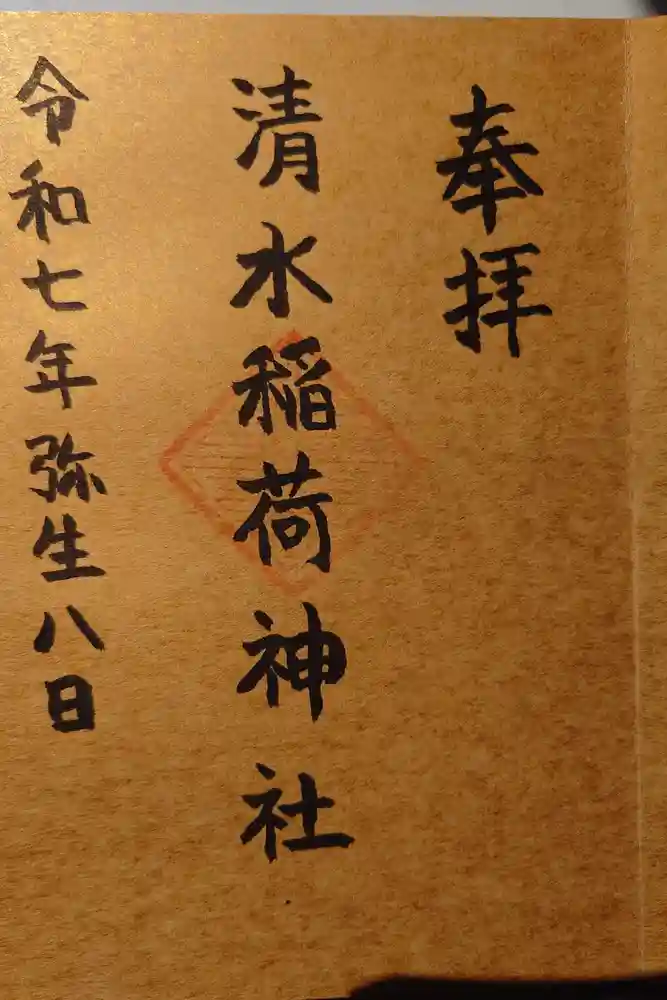 奉拝
清水稲荷神社
令和七年弥生八日